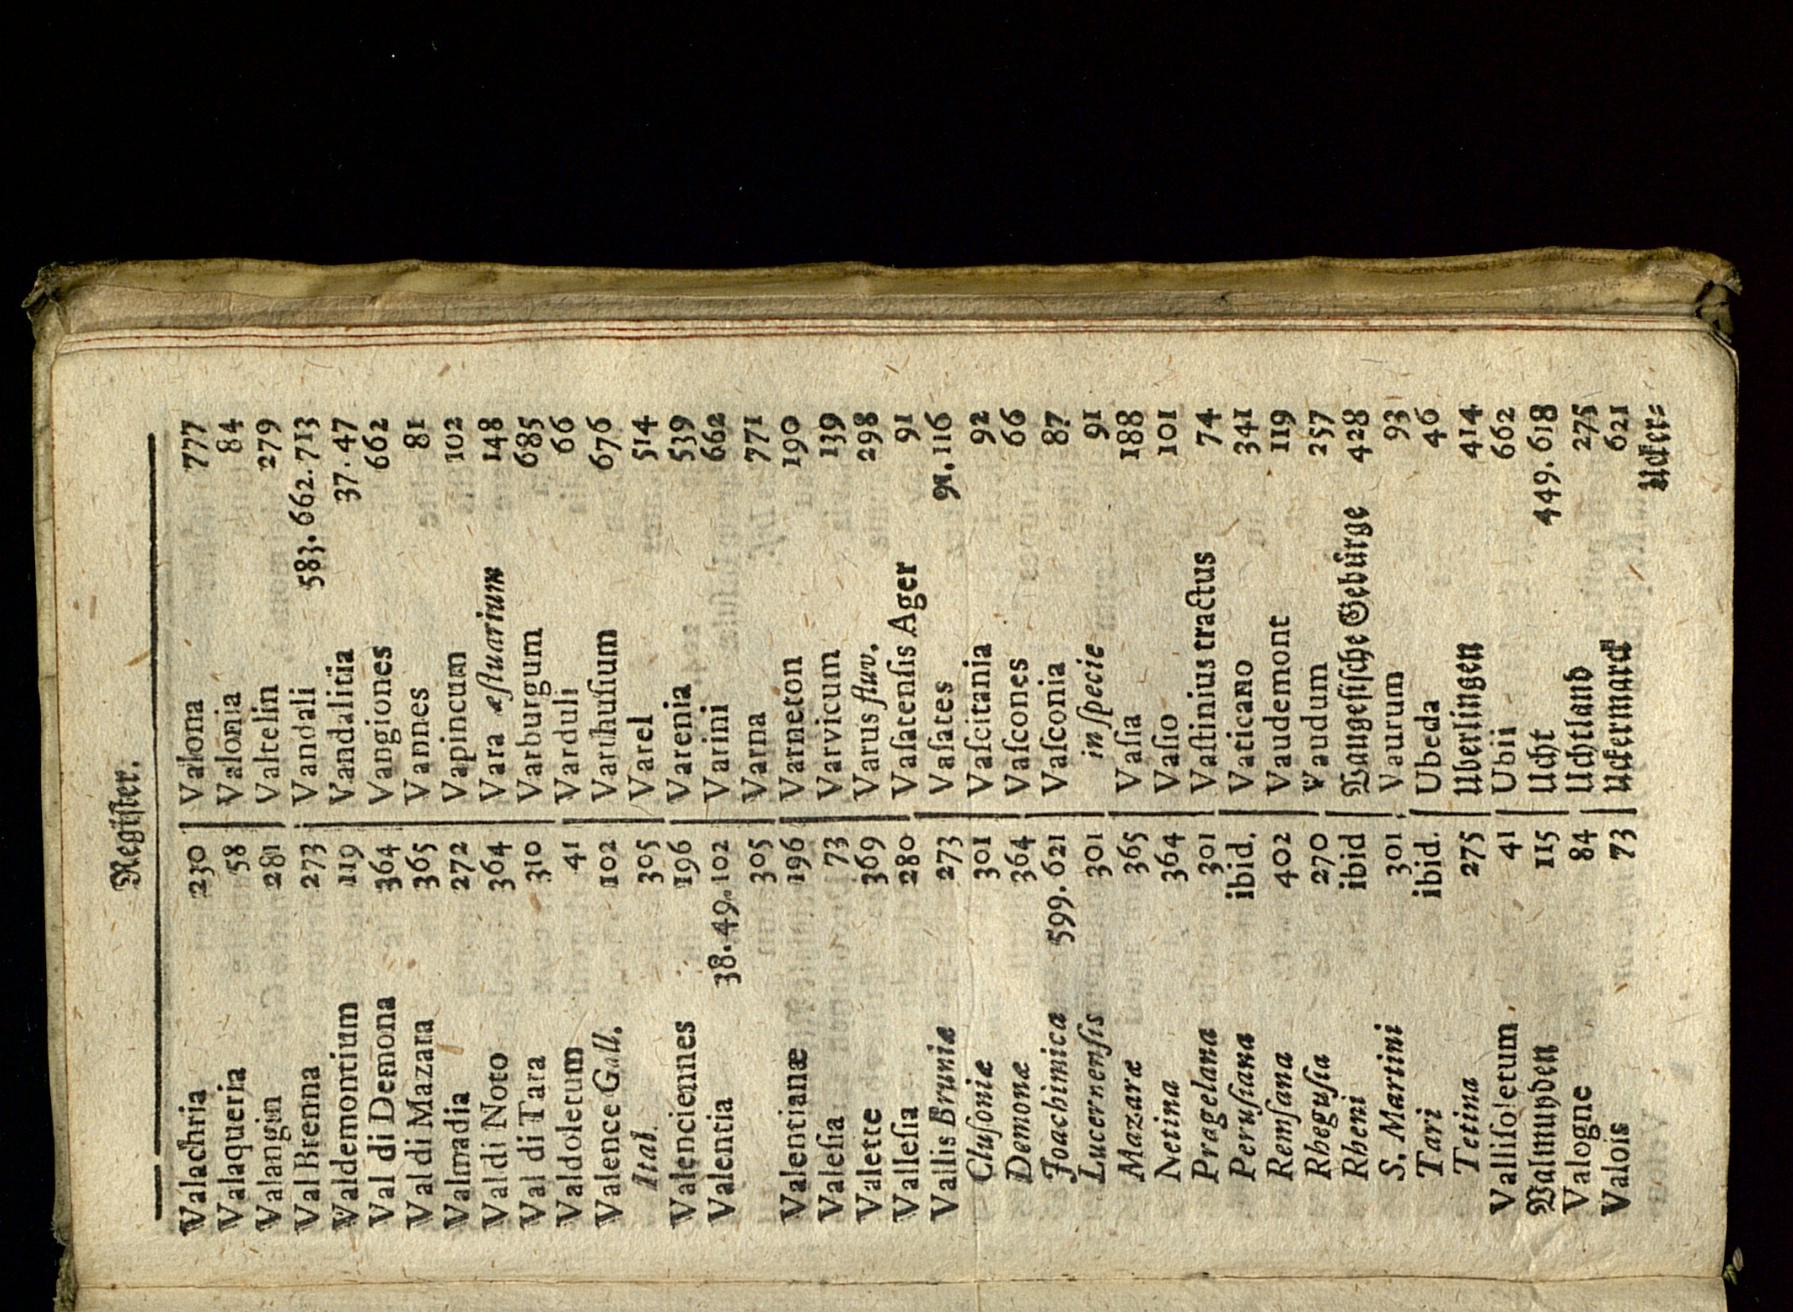 Regiſter.
Valachria 230
Valaqueria 58
Valangin 281
Val Brenna 273
Valdemontium 119
Val di Demona 364
Val di Mazara 365
Valmadia 272
Val di Noto 364
Val di Tara 310
Valdoletum 41
Valence Gall. 102
Ital. 305
Valenciennes 196
Valentia 38. 49. 102
305
Valentianæ 196
Valeſia 73
Valette 369
Valleſia 280
Vallis Bruniæ 273
Cluſoniæ 301
Demonæ 364
Joachimica 599. 621
Lucernenſis 301
Mazaræ 365
Netina 364
Pragelana 301
Peruſiana ibid.
Remſana 402
Rheguſia 270
Rheni ibid
S. Martini 301
Tari ibid.
Tetina 275
Valliſoletum 41
Walmuyden 115
Valogne 84
Valois 73
Valona 777
Valonia 84
Valtelin 279
Vandali 583. 662. 713
Vandalitia 37. 47
Vangiones 662
Vannes 81
Vapincum 102
Vara æſtuarium 148
Varburgum 685
Varduli 66
Varihuſium 676
Varel 514
Varenia 539
Varini 662
Varna 771
Varneton 190
Varvicum 139
Varus fluv. 298
Vaſatenſis Ager 91
Vaſates 91. 116
Vaſcitania 92
Vaſcones 66
Vaſconia 87
in ſpecie 91
Vaſia 188
Vaſio 101
Vaſtinius tractus 74
Vaticano 341
Vaudemont 119
Vaudum 257
Vaugeſiſche Gebürge 428
Vaurum 93
Ubeda 46
Uberlingen 414
Ubii 662
Ucht 449. 618
Uchtland 275
Uckermarck 621
Ucker⸗